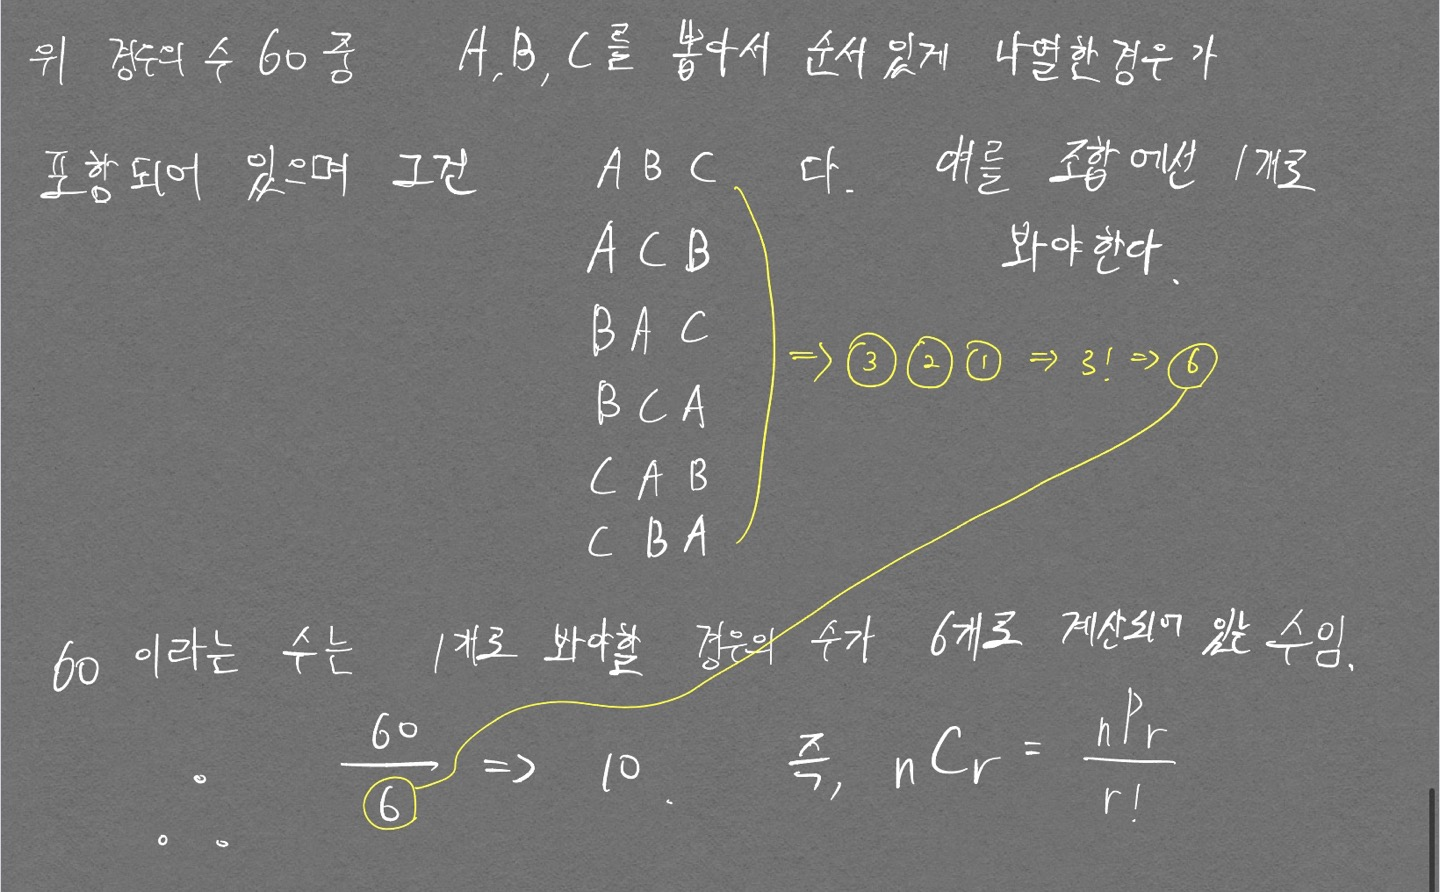 위 경우의 수 60 중 A, B, C를 뽑아서 순서 있게 나열한 경우가
포함되어 있으며 그건 A B C 다. 얘를 조합에선 1개로
A C B 봐야한다.
B A C
=> ③ ② ① => 3! => ⑥
B C A
C A B
C B A
60 이라는 수는 1개로 봐야할 경우의 수가 6개로 계산되어 있는 수임.
∴ 60/6 => 10. 즉, nCr = nPr/r!